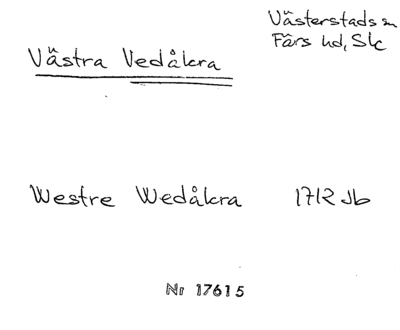 Västerstads sn
Färs hd, Skc
Västra Vedåkra
Westre Wedåkra 1712 Jb
Nr 17615